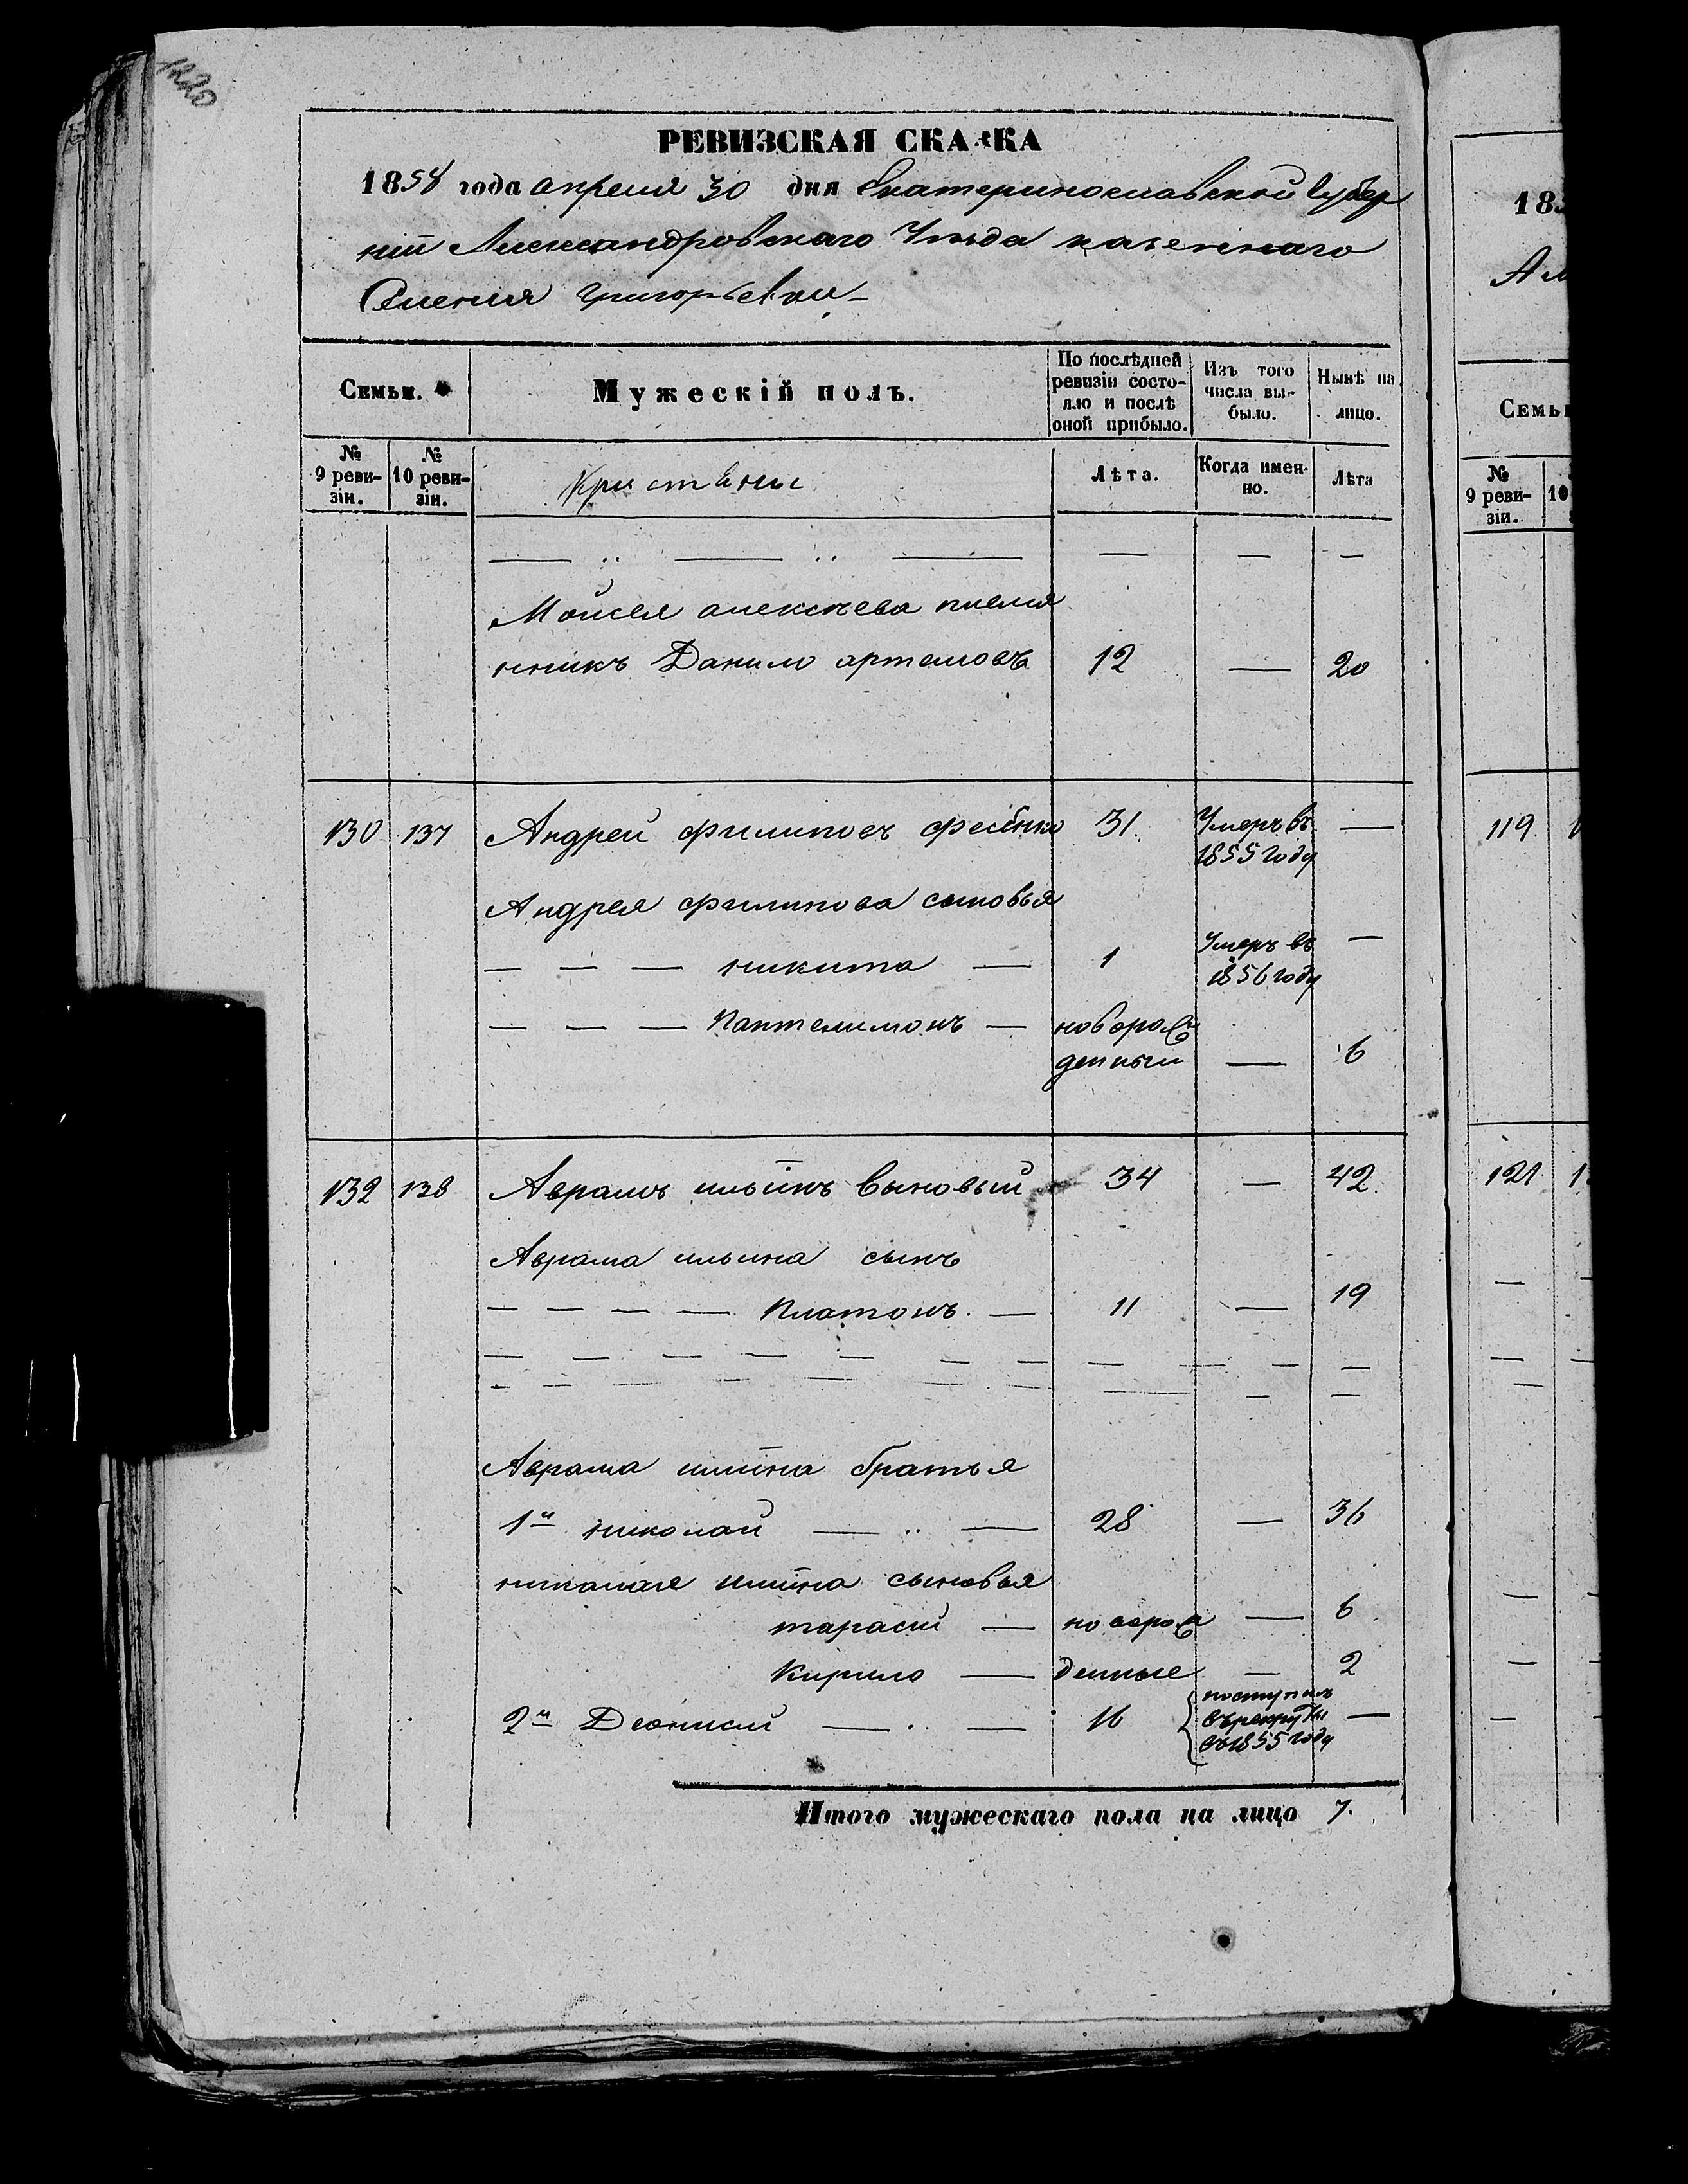 1220
РЕВИЗСКАЯ СКАЗКА
1858 года апреля 30 дня Екатеринославской Губер
ніи Александровскаго Уезда казеннаго
Селения Григорьевки
Семьи. Мужескій полъ. По послѣдней ревизіи состояло и послѣ оной прибыло. Изъ того числа выбыло. Нынѣ на лицо.
№ 9 ревизіи. № 10 ревизіи. Лѣта. Когда именно. Лѣта
Моисея алексѣева племя
нникъ Данило артемовъ 12 — 20
130 137 Андрей филиповъ 31. Умеръ въ 1855 году —
Андрея филипова сыновья
— — — никита — 1 Умеръ въ 1856 году —
— — — Пантелимонъ — новорож
денный — 6
132 138 Аврамъ ильинъ Выновый 34 — 42.
Аврама ильина сынъ
— — — — Платонъ. — 11 — 19
Аврама ильина братья
1й николай — .. — 28 — 36
николая ильина сыновья
тарасий — новорож — 6
Кирило — денные — 2
2й Деонисий — .. — 16 поступилъ въ рекруты въ 1855 году —
Итого мужескаго пола на лицо 7.
183
Семьи
№ 9 ревизіи. 10
119
121